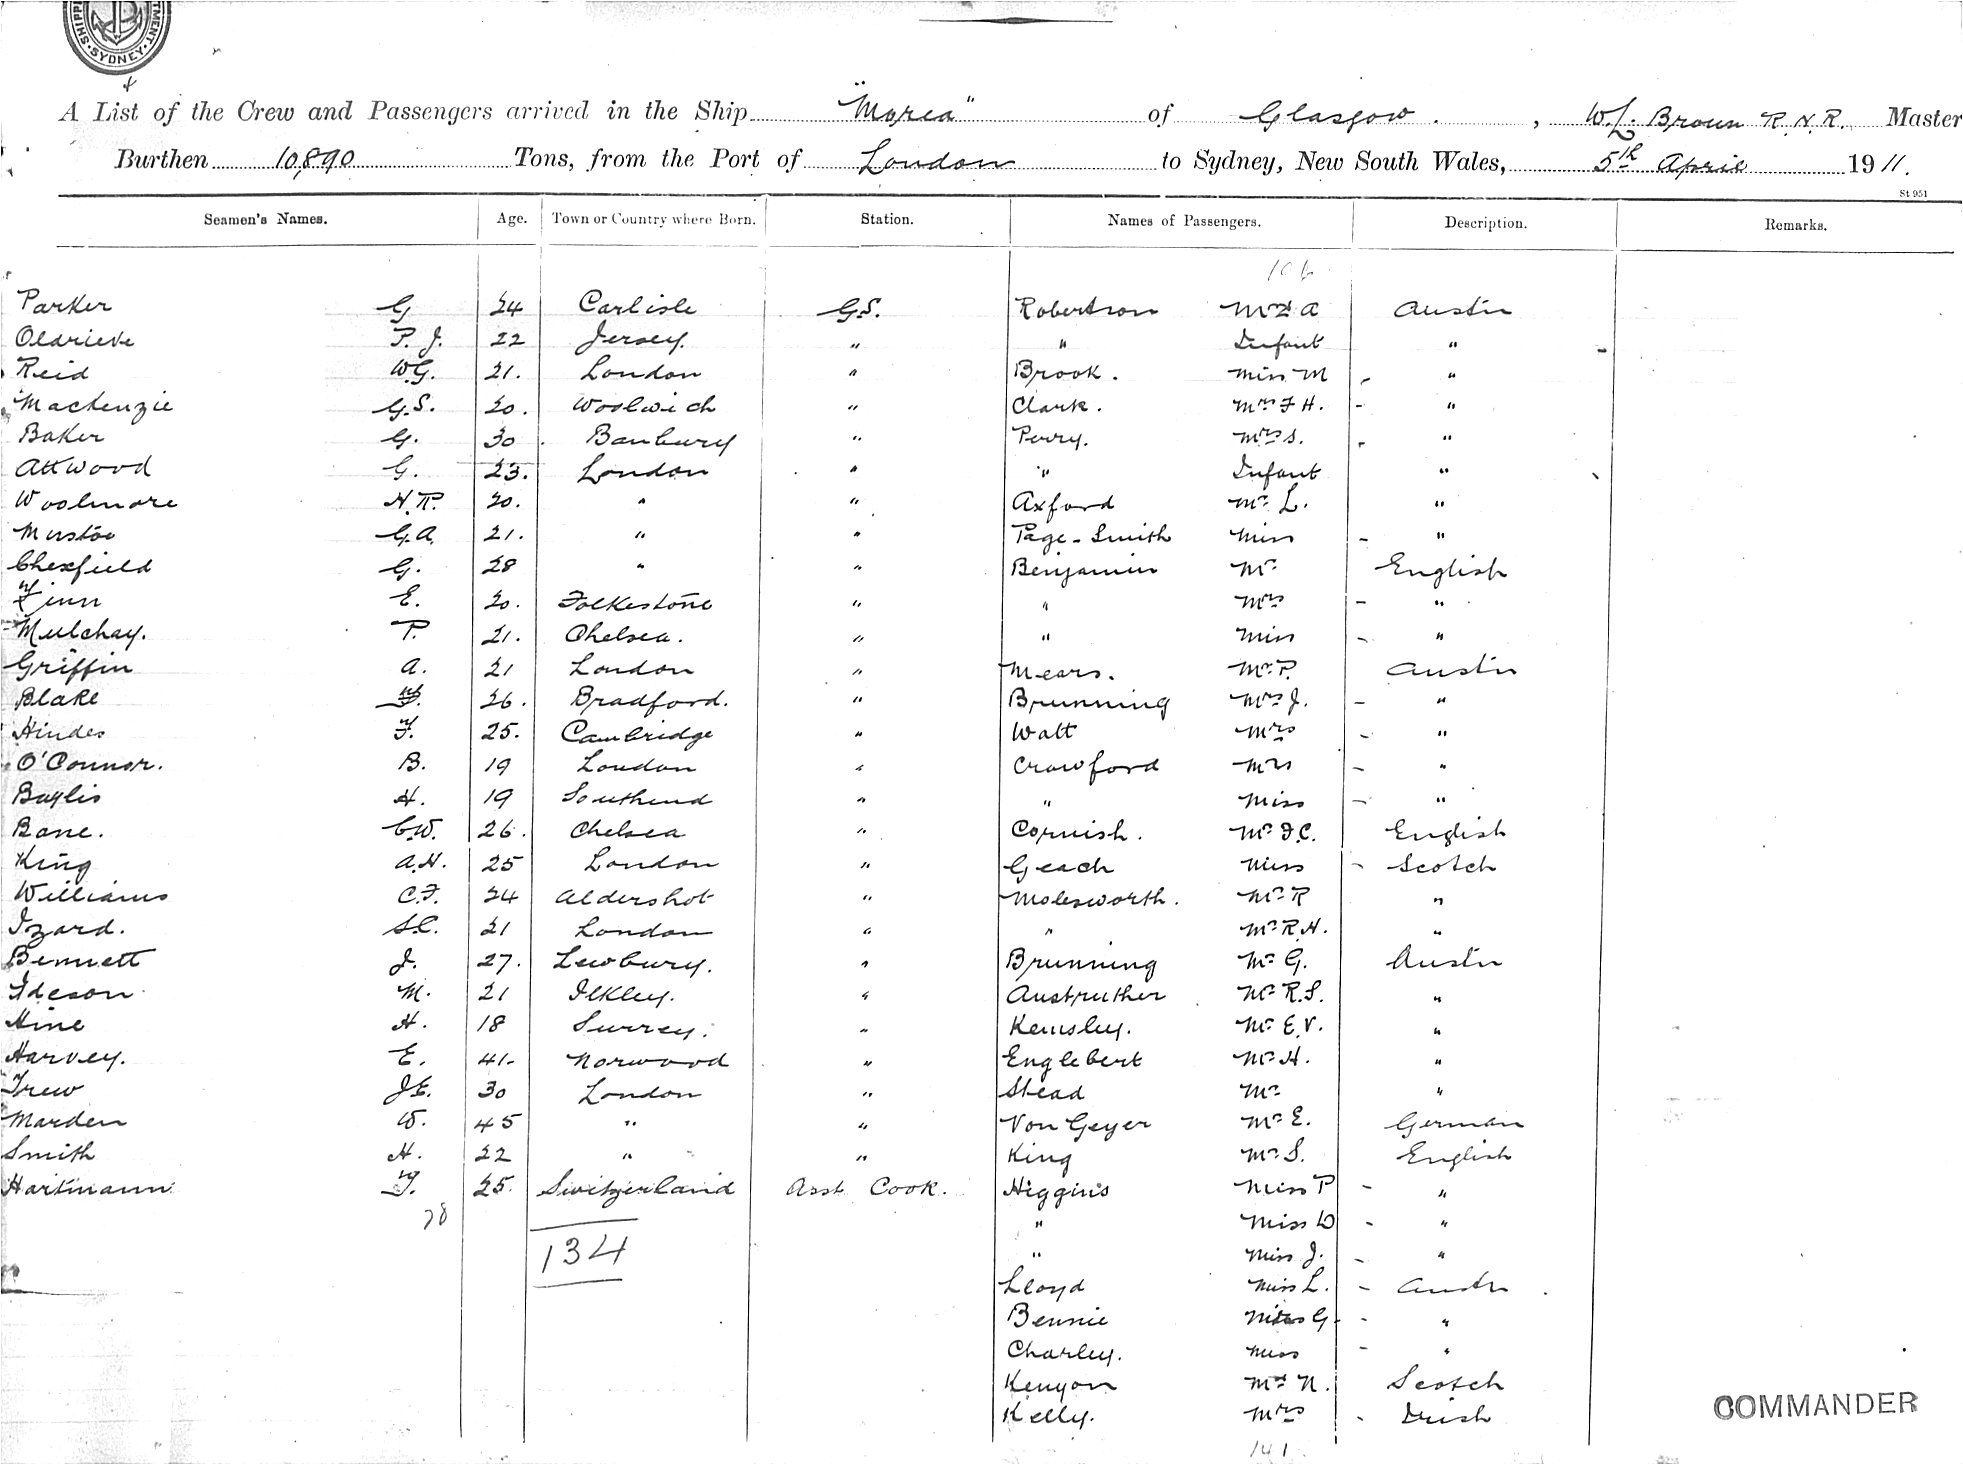 SHIPPI
TMENT
SYDNEY
A List of the Crew and Passengers arrived in the Ship "Morea" of Glasgow. , W.L. Brown R.N.R. Master
Burthen 10,890 Tons, from the Port of London to Sydney, New South Wales, 5th April 1911.
St 951
Seamen's Names. Age. Town or Country where Born. Station. Names of Passengers. Description. Remarks.
106
Parker G 24 Carlisle G.S. Robertson Mrs A Austn
Oldrieve P. J. 22 Jersey. " " Infant "
Reid W.G. 21. London " Brook. Miss M - "
Mackenzie G.S. 20. Woolwich " Clark. Mrs F H. - "
Baker G. 30 Banbury " Perry. Mrs S. - "
Attwood G. 23. London " " Infant "
Woolmore H.R. 20. " " Axford Mr L. "
Mustoe G.A. 21. " " Page-Smith Miss - "
Chexfield G. 28 " " Benjamin Mr English
Finn E. 20. Folkestone " " Mrs - "
Mulchay. P. 21. Chelsea. " " Miss - "
Griffin A. 21 London " Mears. Mr P. Austn
Blake F. 26. Bradford. " Brunning Mrs J. - "
Hindes F. 25. Cambridge " Watt Mrs - "
O'Connor. B. 19 London " Crawford Mrs - "
Baylis H. 19 Southend " " Miss - "
Bane. C.W. 26. Chelsea " Cornish. Mr F.C. English
King A.H. 25 London " Geach Miss - Scotch
Williams C.F. 24 Aldershot " Molesworth. Mr R "
Izard. S.C. 21 London " " Mr R.H. "
Bennett J. 27. Lewbury. " Brunning Mr G. Austn
Ideson M. 21 Ilkley. " Austruther Mr R.S. "
Hine H. 18 Surrey. " Kemsley. Mr E.V. "
Harvey. E. 41- Norwood " Englebert Mr H. "
Trew J.E. 30 London " Stead Mr "
Marden W. 45 " " Von Geyer Mr E. German
Smith H. 22 " " King Mr S. English
Hartmann F. 25. Switzerland Asst Cook. Higgins Miss P - "
28 " Miss D - "
134 " Miss J. - "
Lloyd Miss L. - Austn
Bennie Miss G - "
Charley. Miss - "
Kenyon Mr N. Scotch
Kelly. Mrs - Irish
COMMANDER
141